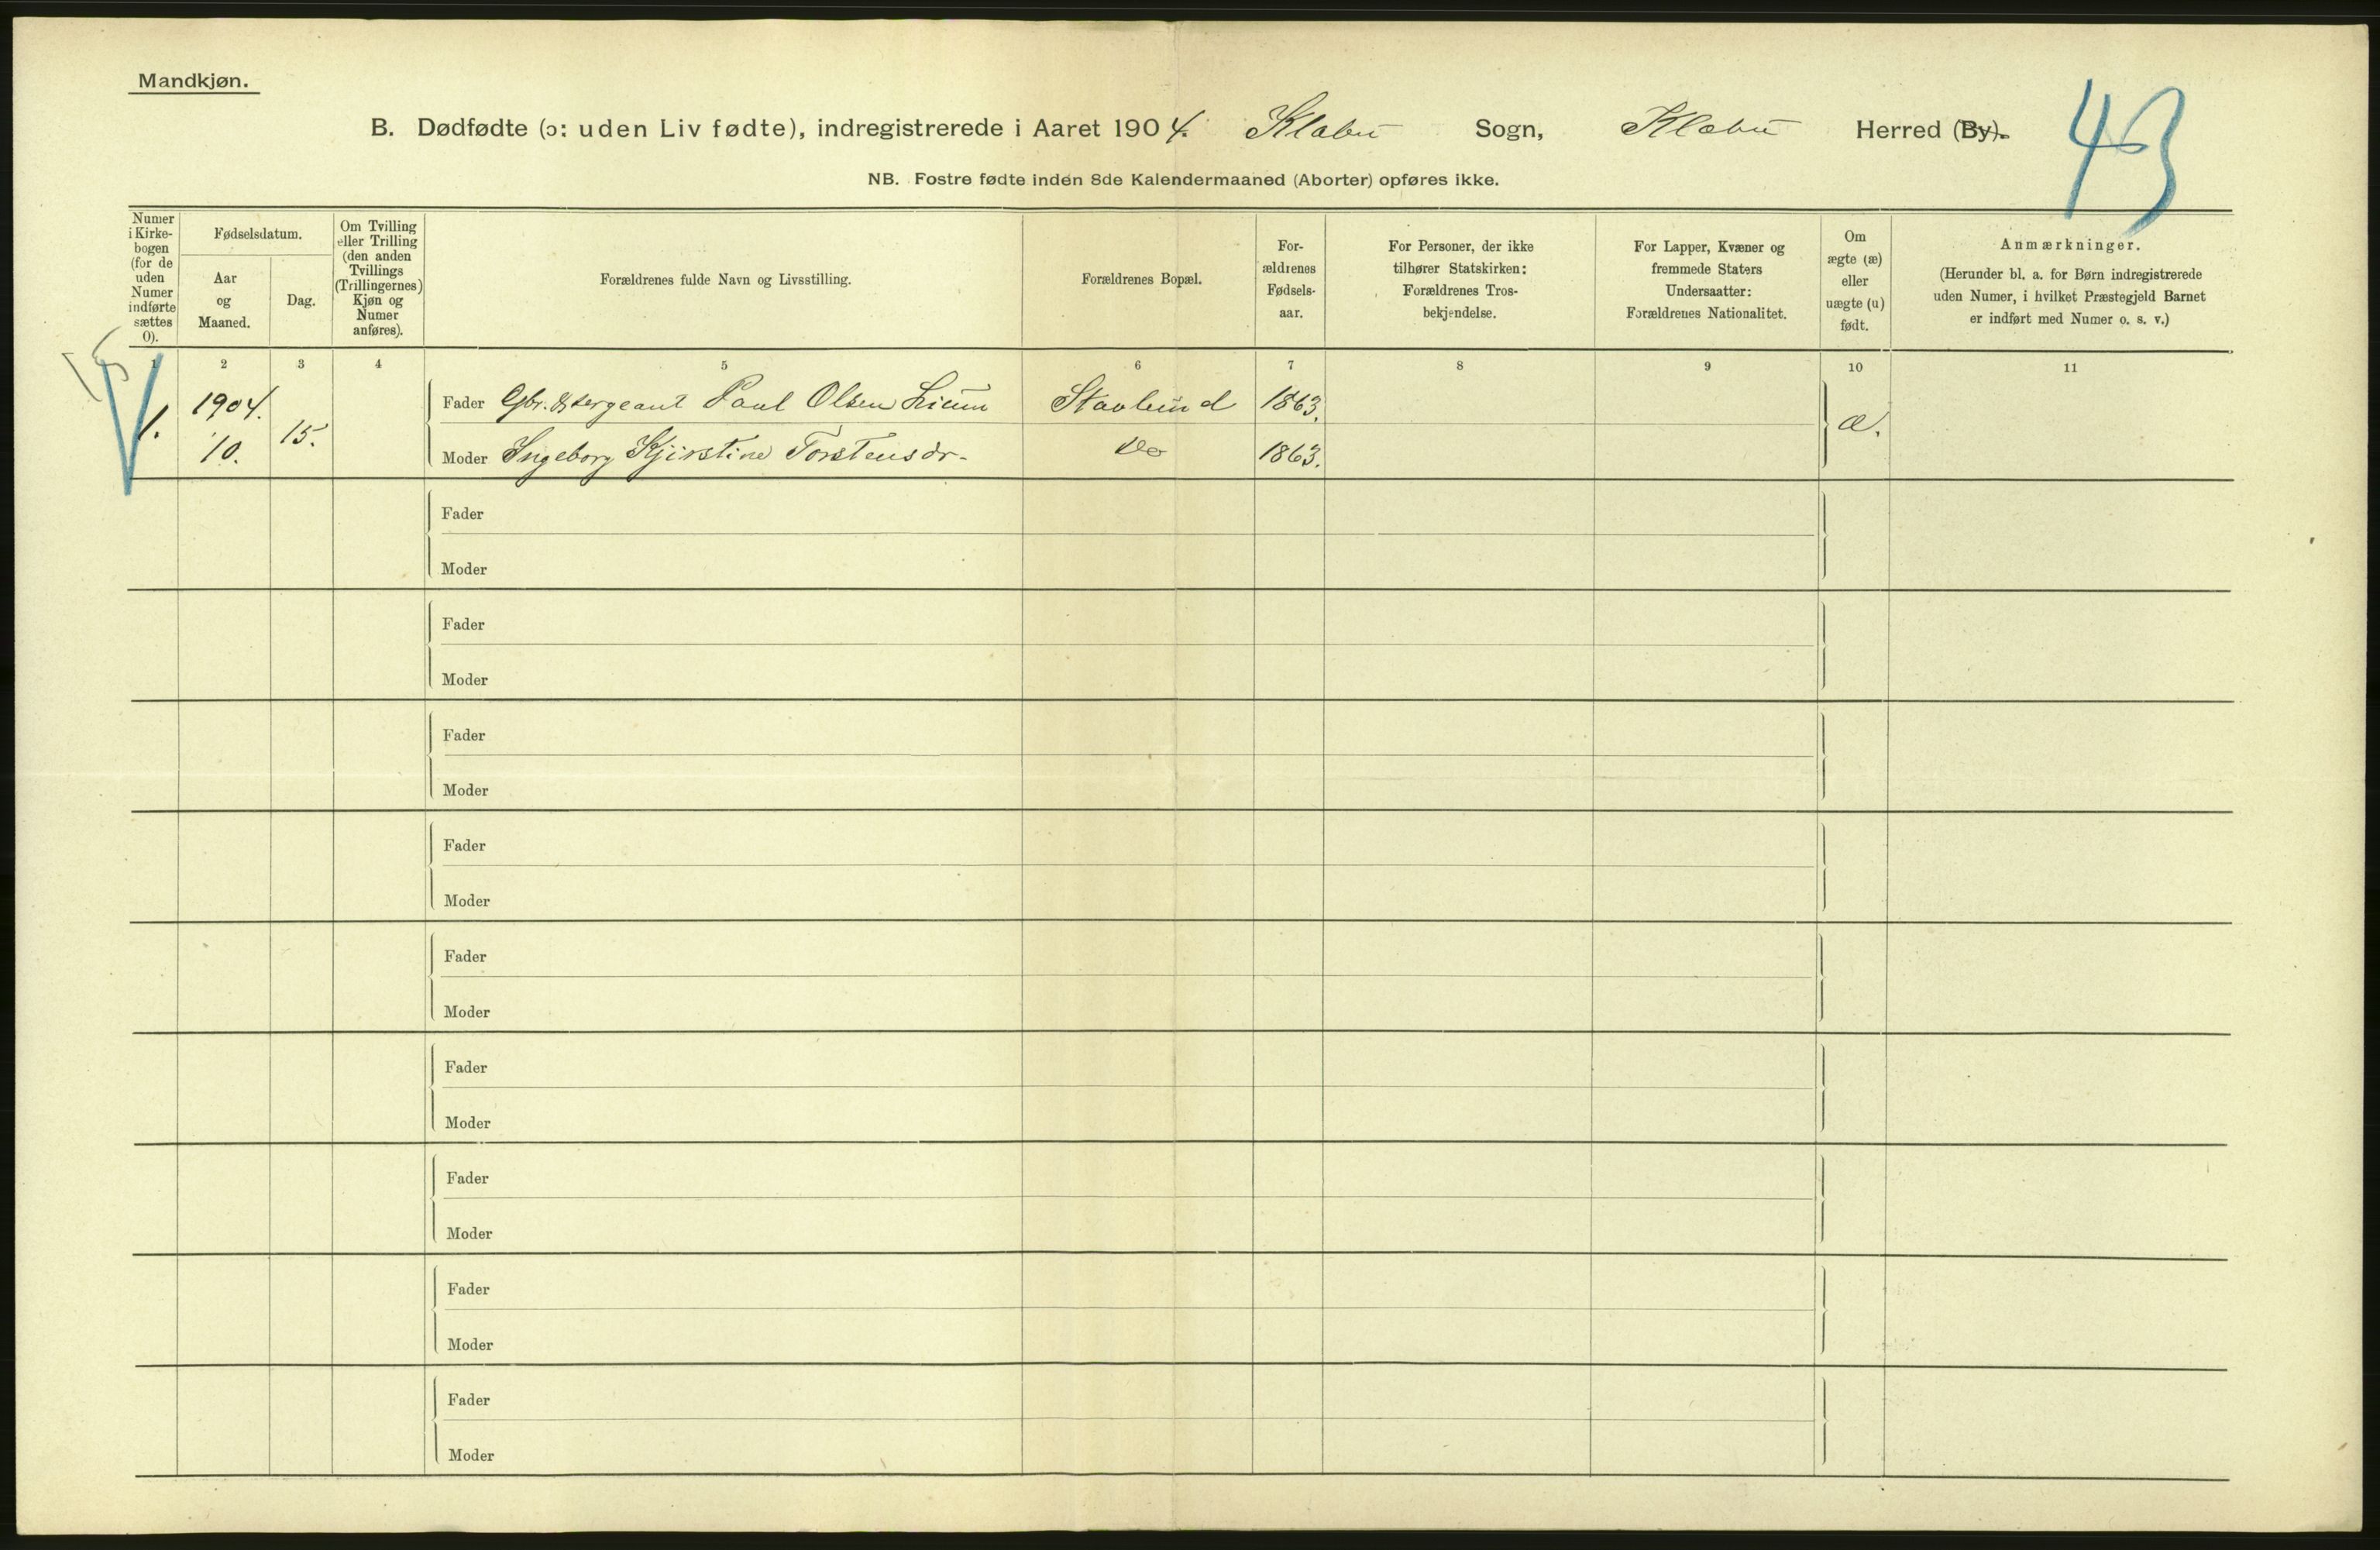 Mandkjøn.
B. Dødfødte (ɔ: uden Liv fødte), indregistrerede i Aaret 1904. Klæbu Sogn, Klæbu Herred (By).
43
NB. Fostre fødte inden 8de Kalendermaaned (Aborter) opføres ikke.
Numer
i Kirke-
bogen
(for de
uden
Numer
indførte
sættes
0).
Fødselsdatum.
Aar
og
Maaned.
Dag.
Om Tvilling
eller Trilling
(den anden
Tvillings
(Trillingernes)
Kjøn og
Numer
anføres).
Forældrenes fulde Navn og Livsstilling.
Forældrenes Bopæl.
For-
ældrenes
Fødsels-
aar.
For Personer, der ikke
tilhører Statskirken:
Forældrenes Tros-
bekjendelse.
For Lapper, Kvæner og
fremmede Staters
Undersaatter:
Forældrenes Nationalitet.
Om
ægte (æ)
eller
uægte (u)
født.
Anmærkninger.
(Herunder bl. a. for Børn indregistrerede
uden Numer, i hvilket Præstegjeld Barnet
er indført med Numer o. s. v.)
1 2 3 4 5 6 7 8 9 10 11
1. 1904. 10. 15.
Fader Gbr. & sergeant Paul Olsen Lium Stavlund 1863.
Moder Ingeborg Kjirstine Torstensdr. do 1863.
æ.
Fader
Moder
Fader
Moder
Fader
Moder
Fader
Moder
Fader
Moder
Fader
Moder
Fader
Moder
Fader
Moder
Fader
Moder